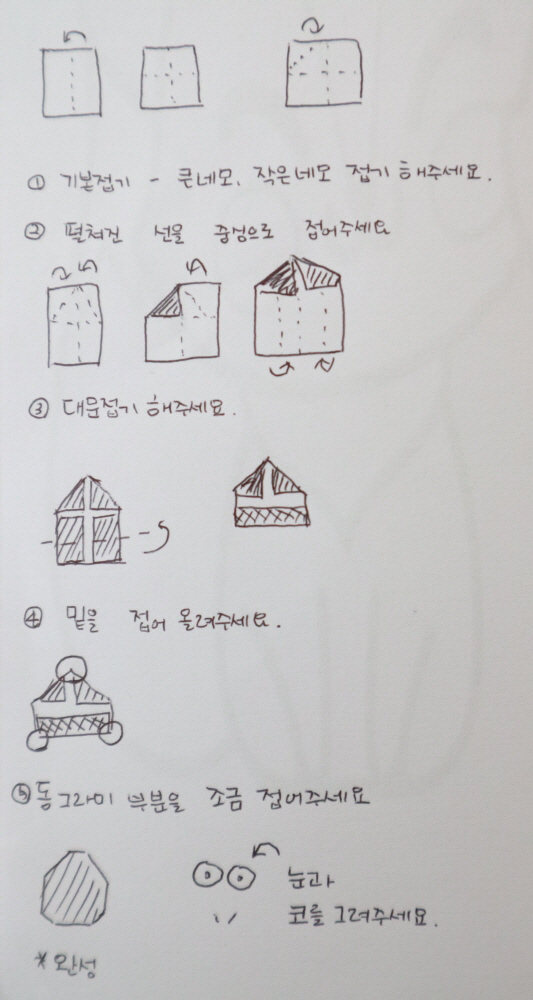 ① 기본접기 - 큰네모, 작은네모 접기 해주세요.
② 펼쳐진 선을 중심으로 접어주세요
③ 대문접기 해주세요.
④ 밑을 접어 올려주세요.
⑤ 동그라미 부분을 조금 접어주세요
눈과
코를 그려주세요.
*완성